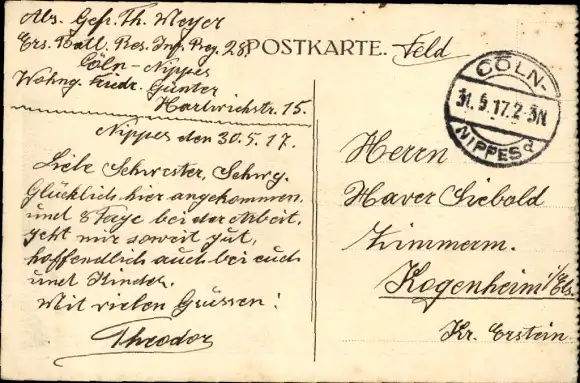 Abs. Gefr. Th. Meyer
Ers. Batl. Res. Inf. Reg. 28.
Cöln-Nippes
Wohng. Friedr. Günter
Hartwichstr. 15.
Nippes den 30.5.17.
Liebe Schwester, Schwg.
Glücklich hier angekommen,
und 8 Tage bei der Arbeit.
geht mir soweit gut,
hoffendlich auch bei euch
und Kinder.
Mit vielen Grüssen!
Theodor
POSTKARTE. Feld
CÖLN-
31.5.17.2-3N
NIPPES d
Herrn
Xaver Siebold
Zimmerm.
Kogenheim i/Els.
Kr. Erstein.